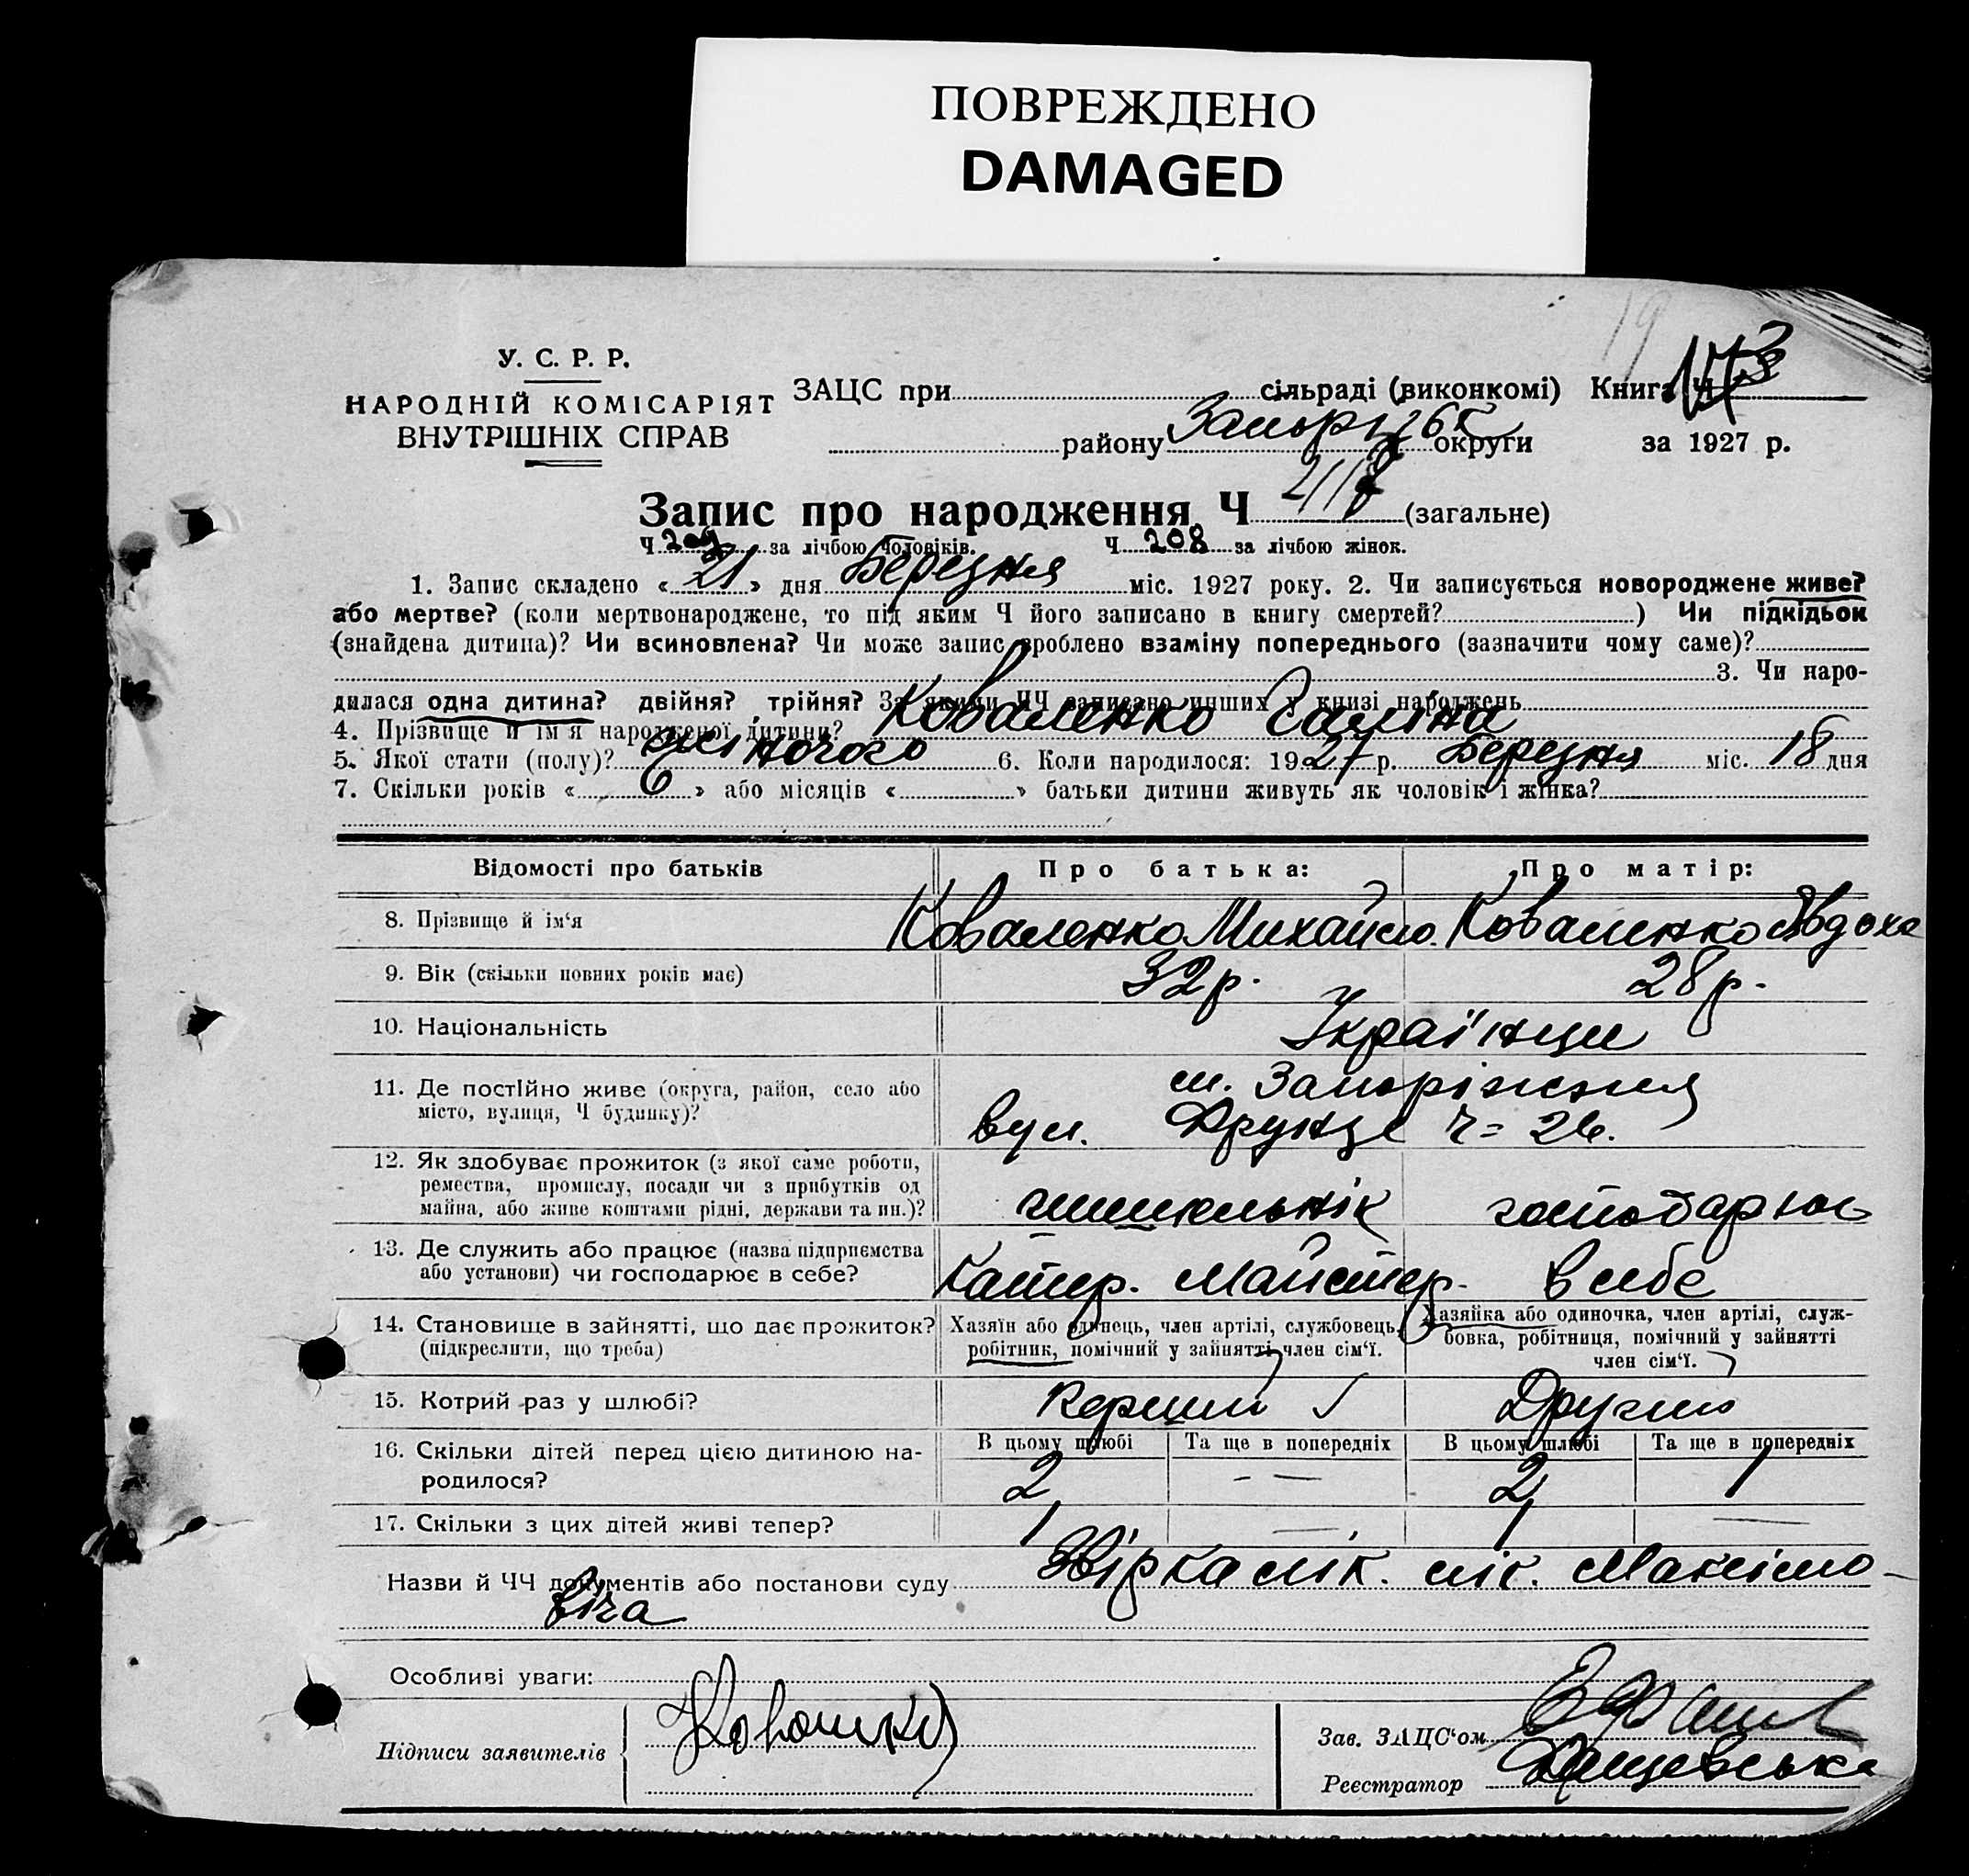 ПОВРЕЖДЕНО
DAMAGED
У. С. Р. Р.
НАРОДНІЙ КОМІСАРІЯТ
ВНУТРІШНІХ СПРАВ
ЗАЦС при сільраді (виконкомі) Книга Ч
району округи за 1927 р.
Запис про народження Ч (загальне)
Ч 209 за лічбою чоловіків. Ч 208 за лічбою жінок.
1. Запис складено « 21 » дня Березня міс. 1927 року. 2. Чи записується новороджене живе?
або мертве? (коли мертвонароджене, то під яким Ч його записано в книгу смертей? ) Чи підкідьок
(знайдена дитина)? Чи всиновлена? Чи може запис зроблено взаміну попереднього (зазначити чому саме)?
3. Чи наро-
дилася одна дитина? двійня? трійня? За якими ЧЧ записано инших у книзі народжень
4. Прізвище й ім'я народженої дитини? Коваленко Галіна
5. Якої стати (полу)? жіночого 6. Коли народилося: 1927 р. Березня міс. 18 дня
7. Скільки років « 6 » або місяців « » батьки дитини живуть як чоловік і жінка?
Відомості про батьків Про батька: Про матір:
8. Прізвище й ім'я Коваленко Михайло Коваленко Явдоха
9. Вік (скільки повних років має) 32 р. 28 р.
10. Національність Українци
11. Де постійно живе (округа, район, село або м. Запоріжжя
місто, вулиця, Ч будинку)? вул. Ч= 26.
12. Як здобуває прожиток (з якої саме роботи,
ремества, промислу, посади чи з прибутків од
майна, або живе коштами рідні, держави та ин.)?
13. Де служить або працює (назва підприємства
або установи) чи господарює в себе? Катер. Майстер. в себе
14. Становище в зайнятті, що дає прожиток? Хазяїн або одинець, член артілі, службовець, Хазяйка або одиночка, член артілі, служ-
(підкреслити, що треба) робітник, помічний у зайнятті член сім'ї. бовка, робітниця, помічний у зайнятті
член сім'ї.
15. Котрий раз у шлюбі? Перший Другий
16. Скільки дітей перед цією дитиною на- В цьому шлюбі Та ще в попередніх В цьому шлюбі Та ще в попередніх
родилося? 2 — — 2 1
17. Скільки з цих дітей живі тепер? 1 — 1 —
Назви й ЧЧ документів або постанови суду Максімо-
віча
Особливі уваги:
Підписи заявителів
Зав. ЗАЦС'ом
Реєстратор